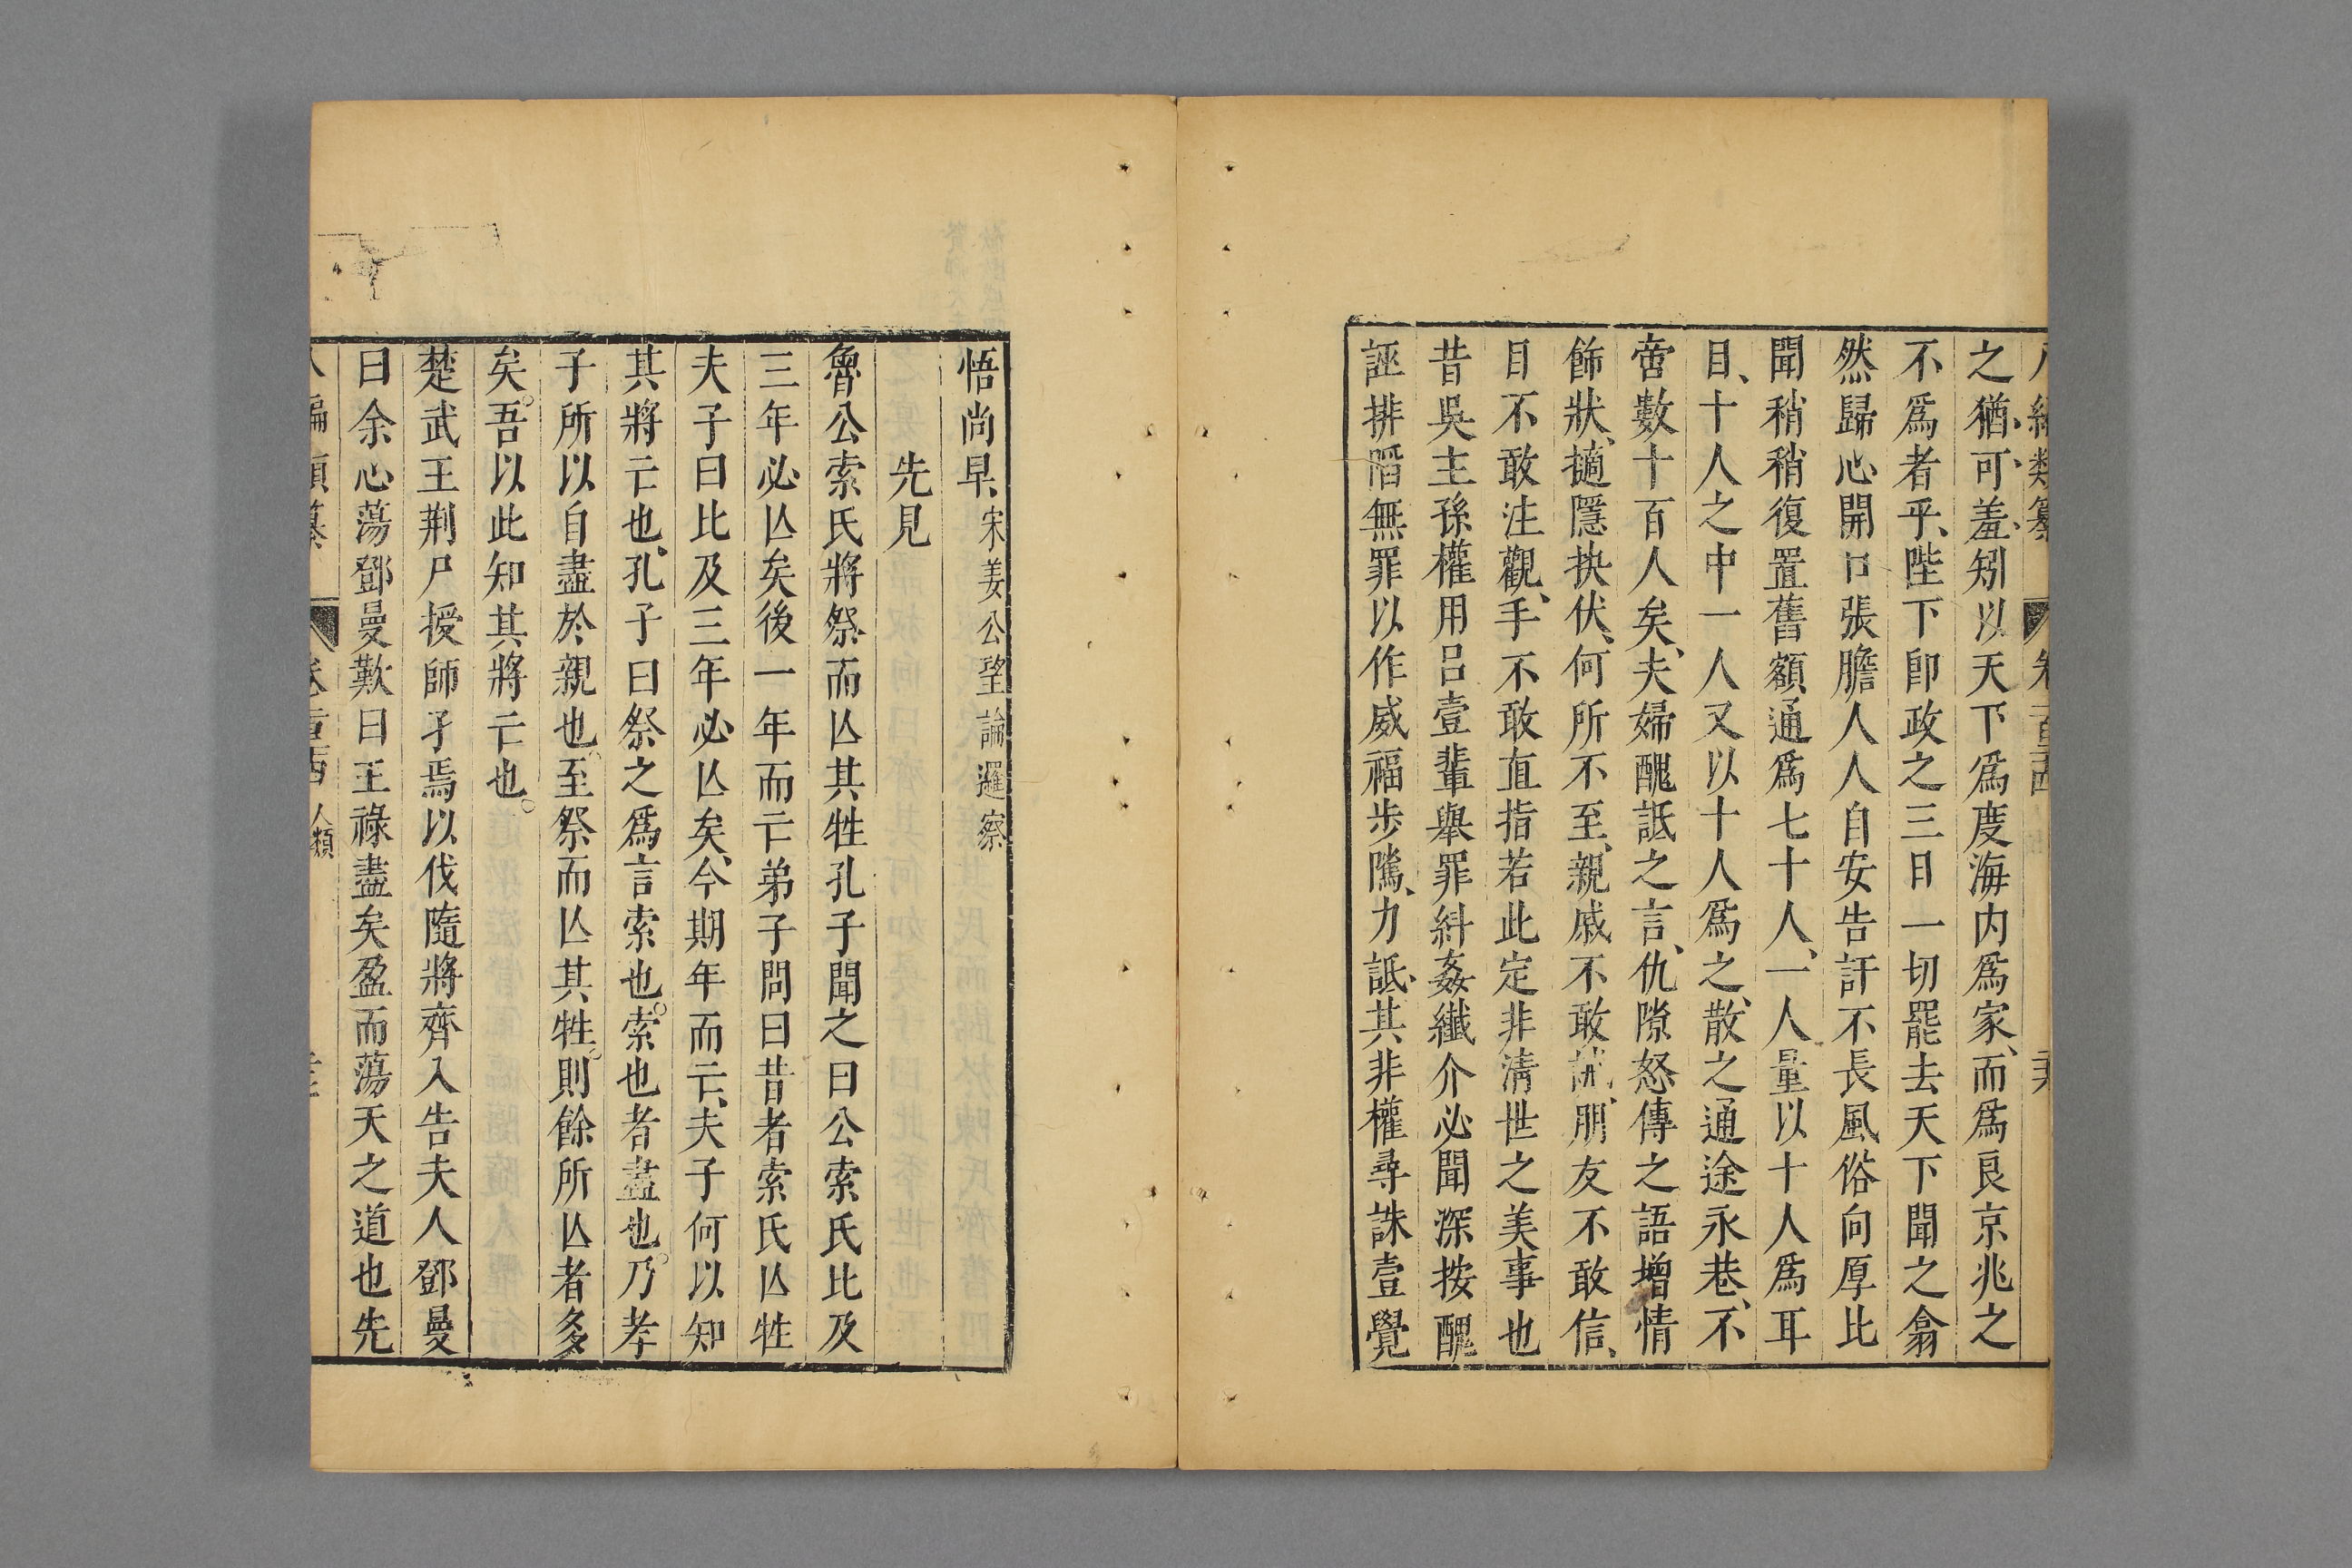 之猶可羞矧以天下爲度海内爲家而爲良京兆之
不爲者乎陛下卽政之三日一切罷去天下聞之翕
然歸心開口張膽人人自安告訐不長風俗向厚比
聞稍稍復置舊額通爲七十人一人量以十人爲耳
目十人之中一人又以十人爲之散之通途永巷不
啻數十百人矣夫婦醜詆之言仇隙怒傳之語增情
飾狀擿隱抉伏何所不至親戚不敢誡朋友不敢信
目不敢注觀手不敢直指若此定非淸世之美事也
昔吳主孫權用呂壹輩舉罪糾姦纎介必聞深按醜
誣排陷無罪以作威福步隲力詆其非權尋誅壹覺
悟尚早宋姜公望論邏察
先見
魯公索氏將祭而亾其牲孔子聞之曰公索氏比及
三年必亾矣後一年而亡弟子問曰昔者索氏亾牲
夫子曰比及三年必亾矣今期年而亡夫子何以知
其將亡也孔子曰祭之爲言索也索也者盡也乃孝
子所以自盡於親也至祭而亾其牲則餘所亾者多
矣吾以此知其將亡也
楚武王荆尸授師孑焉以伐隨將齊入告夫人鄧曼
曰余心蕩鄧曼歎曰王祿盡矣盈而蕩天之道也先
人類